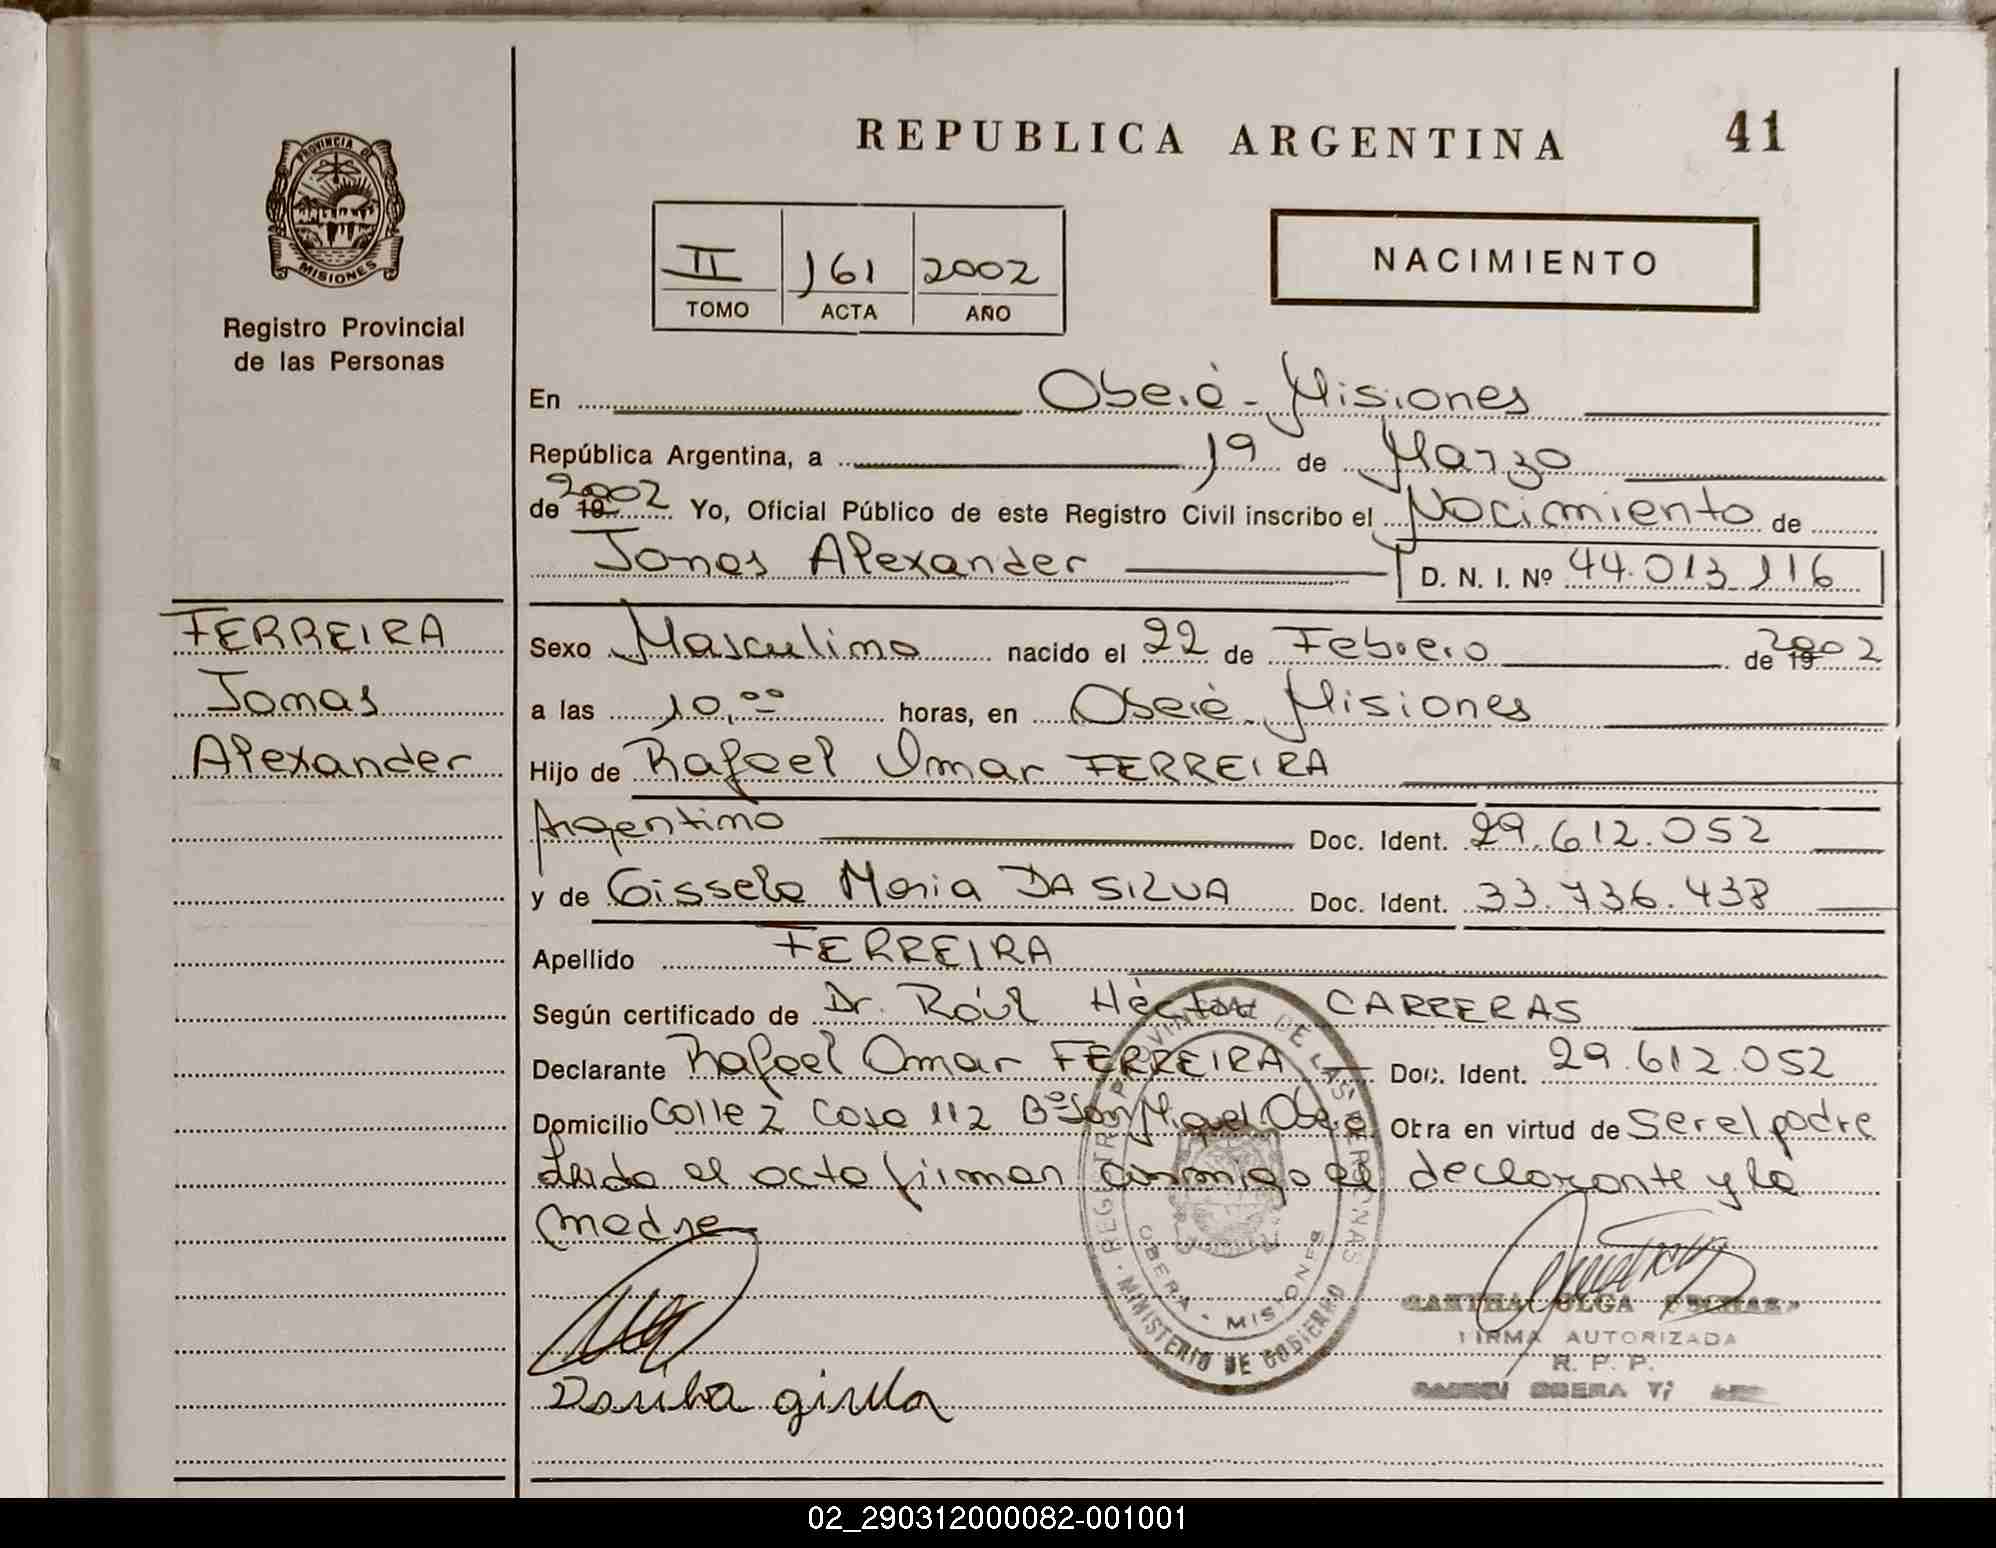 PROVINCIA DE
MISIONES
Registro Provincial
de las Personas
REPUBLICA ARGENTINA
41
II 161 2002
TOMO ACTA AÑO
NACIMIENTO
En Oberá - Misiones
República Argentina, a 19 de Marzo
de 19 2002 Yo, Oficial Público de este Registro Civil inscribo el Nacimiento de
Jonas Alexander D. N. I. Nº 44.013.116
FERREIRA
Jonas
Alexander
Sexo Masculino nacido el 22 de Febrero de 19 2002
a las 10,00 horas, en Oberá Misiones
Hijo de Rafael Omar FERREIRA
Argentino Doc. Ident. 29.612.052
y de Gissela Maria DA SILVA Doc. Ident. 33.736.438
Apellido FERREIRA
Según certificado de Dr. Raúl Héctor CARRERAS
Declarante Rafael Omar FERREIRA Doc. Ident. 29.612.052
Domicilio Calle 2 Casa 112 Bº San Miguel Oberá Obra en virtud de ser el padre
Leida el acta firman conmigo el declarante y la
madre
REGISTRO PROVINCIAL DE LAS PERSONAS
OBERA - MISIONES
MINISTERIO DE GOBIERNO
OLGA
FIRMA AUTORIZADA
R. P. P.
OBERA
02_290312000082-001001